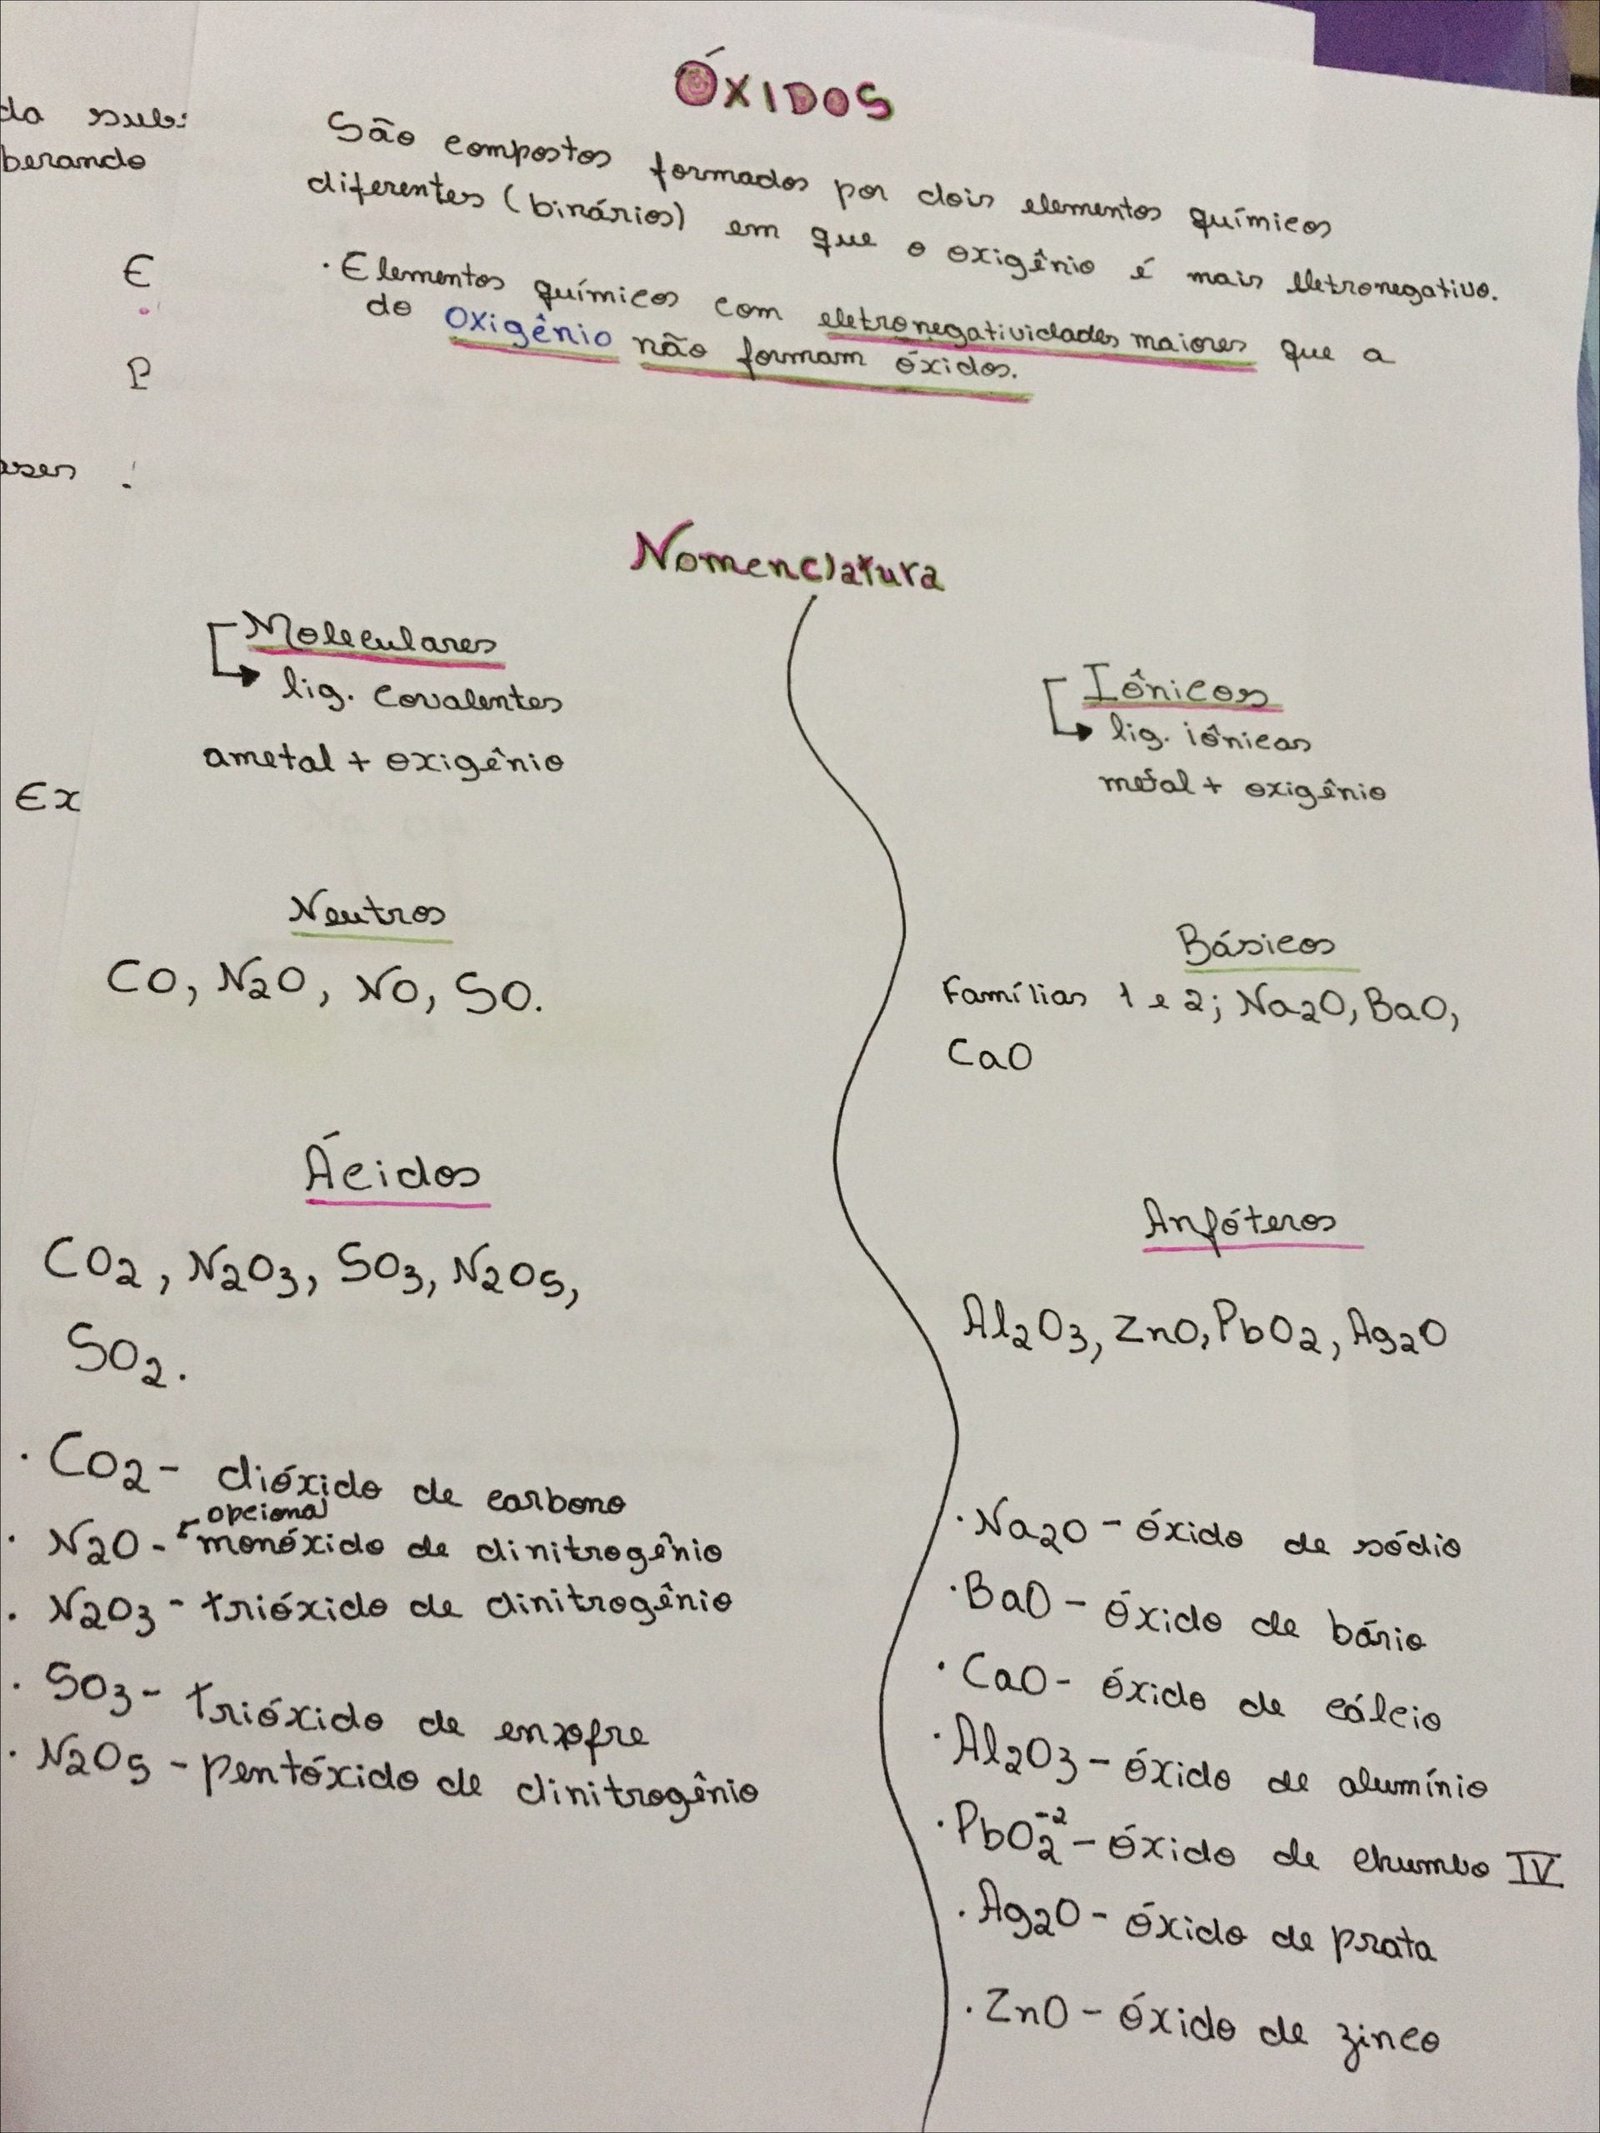 ÓXIDOS
São compostos formados por dois elementos químicos
diferentes (binários) em que o oxigênio é mais eletronegativo.
· Elementos químicos com eletronegatividades maiores que a
do oxigênio não formam óxidos.
da
berando
E
P
Ex
Nomenclatura
Moleculares
lig. covalentes
ametal + oxigênio
Neutros
CO, N2O, NO, SO.
Ácidos
CO2, N2O3, SO3, N2O5,
SO2.
· CO2 - dióxido de carbono
opcional
· N2O - monóxido de dinitrogênio
· N2O3 - trióxido de dinitrogênio
· SO3 - trióxido de enxofre
· N2O5 - pentóxido de dinitrogênio
Iônicos
lig. iônicas
metal + oxigênio
Básicos
Famílias 1 e 2; Na2O, BaO,
CaO
Anfóteros
Al2O3, ZnO, PbO2, Ag2O
· Na2O - óxido de sódio
· BaO - óxido de bário
· CaO - óxido de cálcio
· Al2O3 - óxido de alumínio
· PbO2⁻² - óxido de chumbo IV
· Ag2O - óxido de prata
· ZnO - óxido de zinco